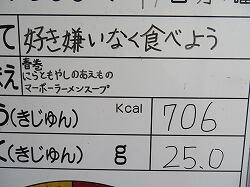 て 好き嫌いなく食べよう
え 春巻
にらともやしのあえもの
マーボーラーメンスープ
う(きじゅん) Kcal 706
く(きじゅん) g 25.0